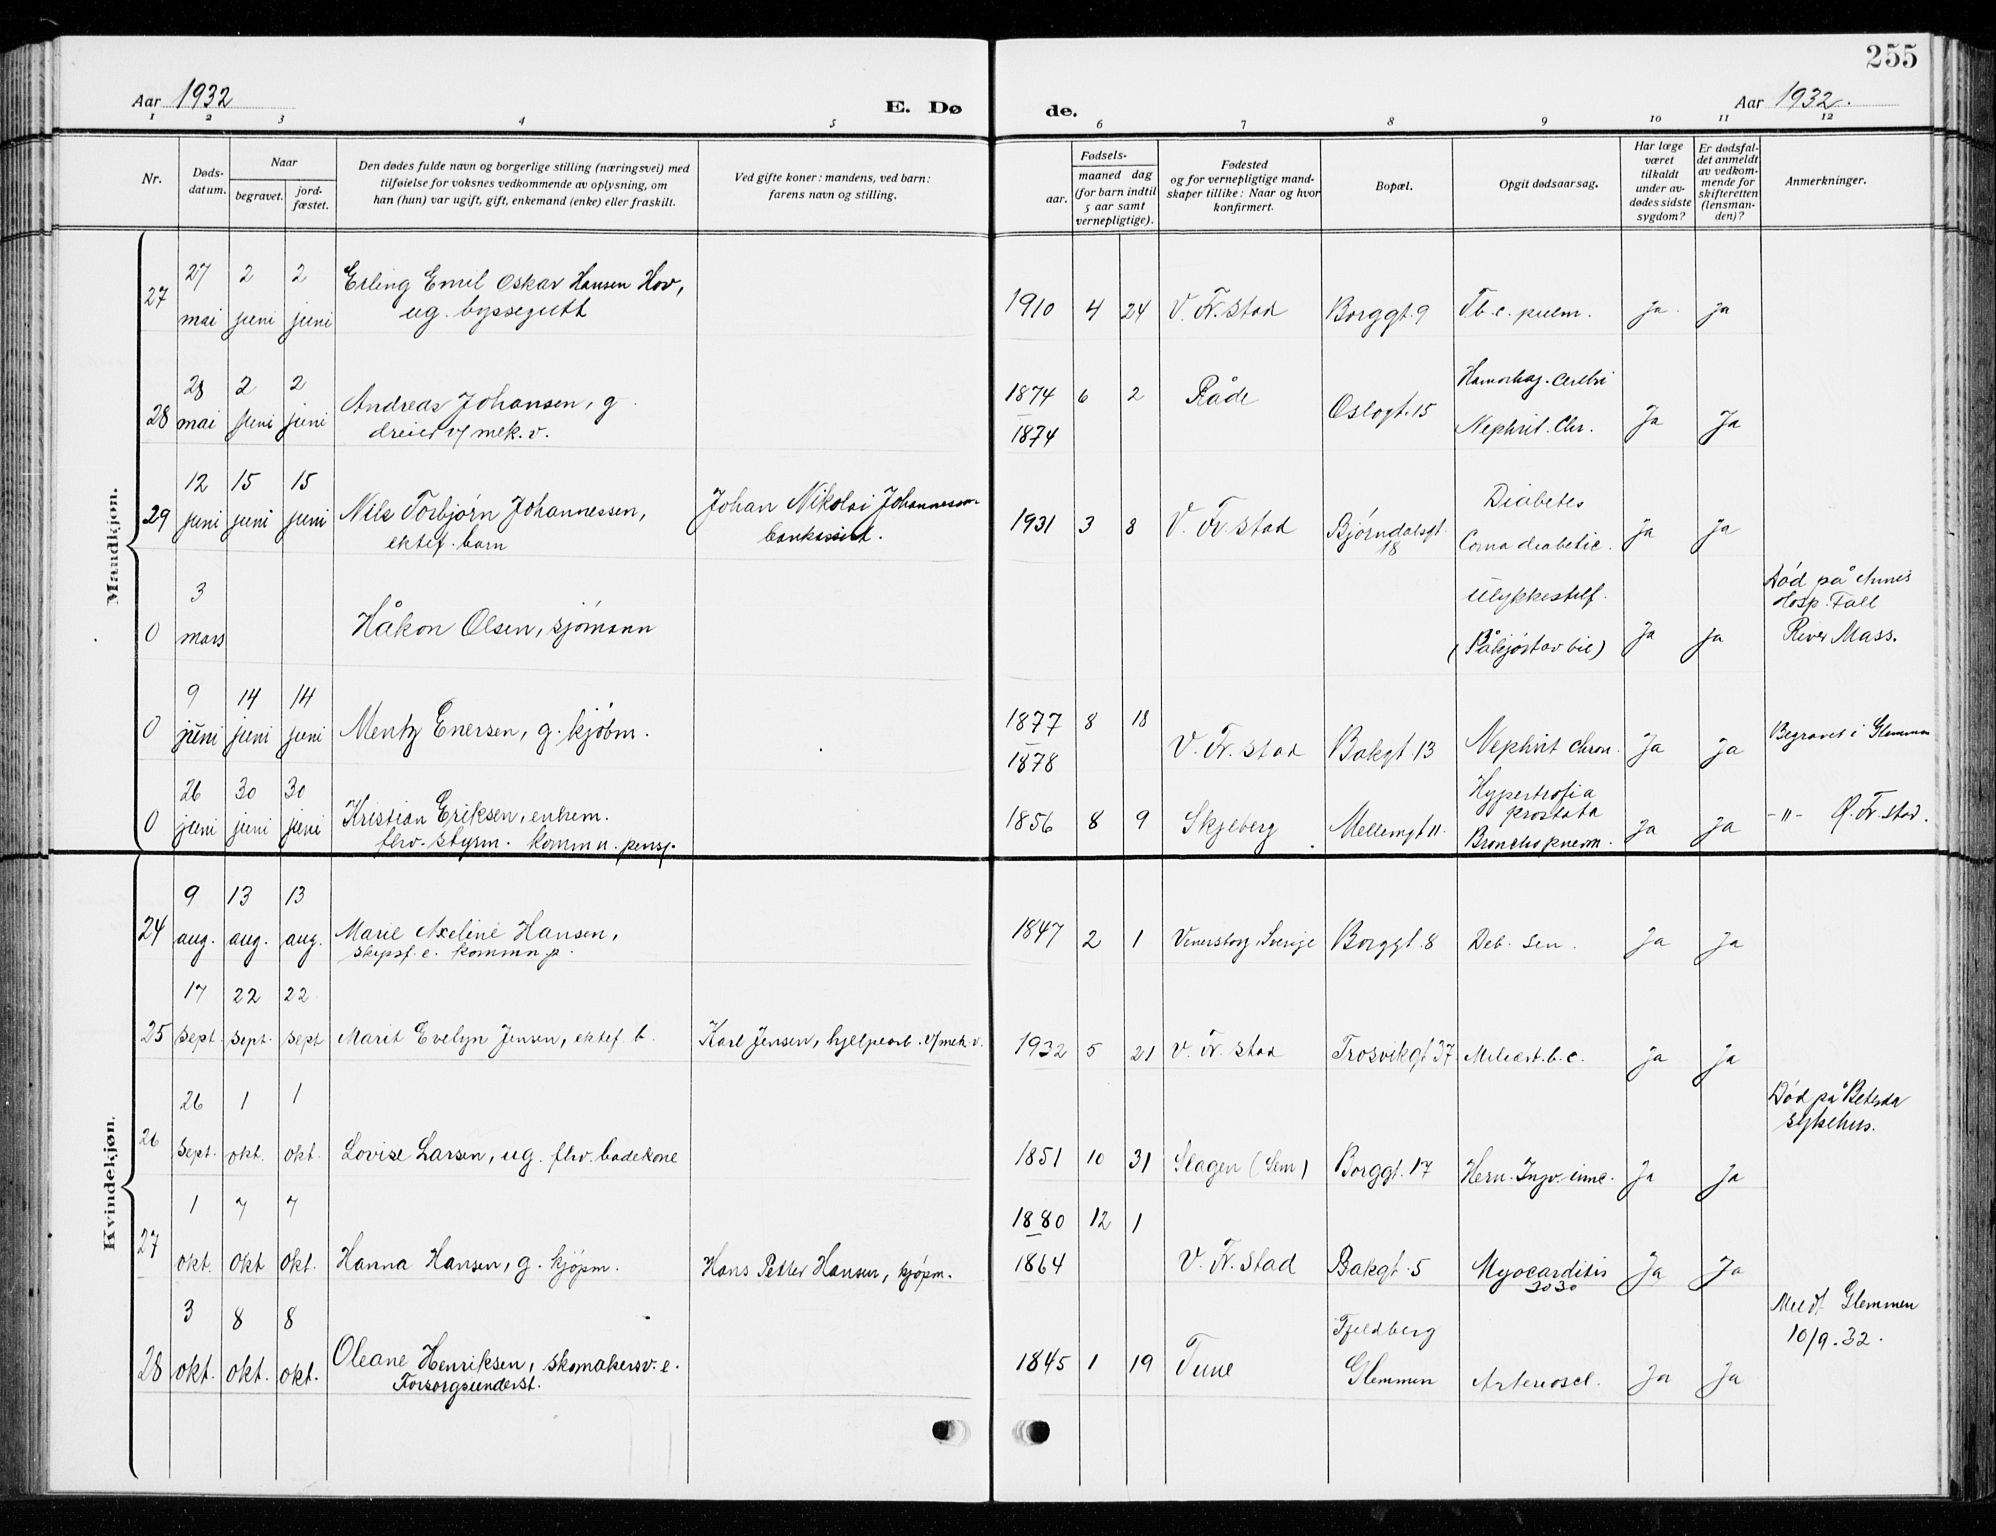 255
Aar 1932
E. Dø
de.
Aar 1932.
1 2 3 4 5 6 7 8 9 10 11 12
Nr.
Døds-
datum.
Naar
begravet.
jord-
fæstet.
Den dødes fulde navn og borgerlige stilling (næringsvei) med
tilføielse for voksnes vedkommende av oplysning, om
han (hun) var ugift, gift, enkemand (enke) eller fraskilt.
Ved gifte koner: mandens, ved barn:
farens navn og stilling.
Fødsels-
aar.
maaned dag
(for barn indtil
5 aar samt
vernepligtige).
Fødested
og for vernepligtige mand-
skaper tillike: Naar og hvor
konfirmert.
Bopæl.
Opgit dødsaarsag.
Har læge
været
tilkaldt
under av-
dødes sidste
sygdom?
Er dødsfal-
det anmeldt
av vedkom-
mende for
skifteretten
(lensman-
den)?
Anmerkninger.
Mandkjøn.
27 27 mai 2 juni 2 juni Erling Emil Oskar Hansen Hov,
ug. byssegutt
1910 4 24 V. Fr.stad Borggt. 9 Tb. c. pulm. Ja. Ja
28 28 mai 2 juni 2 juni Andreas Johansen, g.
dreier v/ mek. v.
1874 6 2 Råde Oslogt. 15 Hæmorhag. cerebri
1874 Nephrit. Chr. Ja Ja
29 12 juni 15 juni 15 juni Nils Torbjørn Johannessen,
ektef. barn
Johan Nikolai Johannessen
bankassist.
1931 3 8 V. Fr.stad Bjørndalsgt. 18 Diabetes
Coma diabetic. Ja Ja
0 3 mars Håkon Olsen, sjømann
Ulykkestilf.
(Påkjørt av bil) Ja Ja
Død på
Hosp. Fall
River Mass.
0 9 juni 14 juni 14 juni Mentz Enersen, g. kjøbm.
1877 8 18
1878 V. Fr.stad Bakgt 13 Nephrit chron. Ja Ja Begravet i Glemmen
0 26 juni 30 juni 30 juni Kristian Eriksen, enkem.
fhv. styrm. kommu. pensj.
1856 8 9 Skjeberg Mellemgt 11. Hypertrofia
prostata
Bronchopneum. Ja Ja -"- Ø. Fr.stad.
Kvindekjøn.
24 9 aug. 13 aug. 13 aug. Marie Axeline Hansen,
skipsf. e. kommu p.
1847 2 1 Venersborg, Sverige Borggt. 8 Deb. sen. Ja Ja
25 17 sept. 22 sept. 22 sept Marit Evelyn Jensen, ektef. b.
Karl Jensen, hjelpearb. v/ mek. v.
1932 5 21 V. Fr.stad Trosvikgt 37 Miliært.b.c. Ja Ja
26 26 sept. 1 okt. 1 okt. Lovise Larsen, ug. fhv. badekone
1851 10 31 Slagen (Sem) Borggt. 17 Hern. Ingv. inc. Ja Ja
Død på Betesda
sykehus.
27 1 okt. 7 okt 7 okt. Hanna Hansen, g. kjøpm.
Hans Petter Hansen, kjøpm.
1880 12 1
1864 V. Fr.stad Bakgt. 5 Myocarditis Ja Ja
3030
28 3 okt. 8 okt. 8 okt. Oleane Henriksen, skomakersv. e.
Forsorgsunderst.
1845 1 19 Tune Fjeldberg
Glemmen Arterioscl. Ja Ja
Meldt Glemmen
10/9. 32.